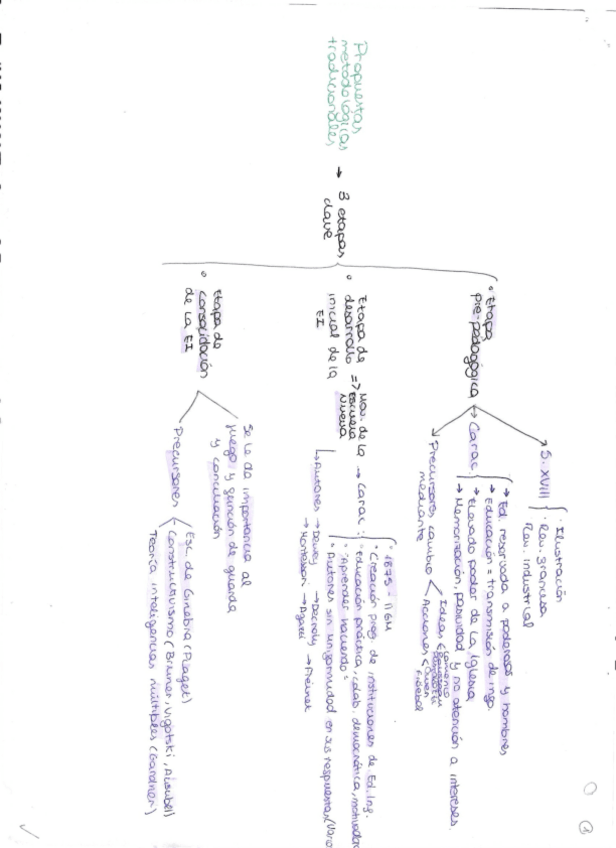 Propuestas
metodológicas
tradicionales
→ 3 etapas
clave
• Etapa
pre-pedagógica
S. XVIII
· Ilustración
· Rev. francesa
Rev. industrial
→ Carac.
→ Ed. reservada a poderosos y hombres
→ Educación = transmisión de info.
→ Elevado poder de la Iglesia
→ Memorización, pasividad y no atención a intereses.
Precursores cambio
mediante
Ideas
Comenio
Acciones
Owen
Fröebel
• Etapa de
desarrollo
inicial de la
EI
=> Mov. de la
Escuela
Nueva
→ Carac.
• 1875 -
• Creación prog. de instituciones de Ed. Inf.
• Educación práctica, colab, democrática, motivador
• "Aprender haciendo"
• Autores sin uniformidad en sus respuestas
↳ Autores → Dewey → Decroly → Freinet
→ Montessori → Agazzi
• Etapa de
consolidación
de la EI
Se le da importancia al
juego y función de guarda
y conciliación
Precursores
Esc. de Ginebra (Piaget)
Constructivismo (Bruner, Vigotski, Ausubel)
Teoría inteligencias múltiples (Gardner)